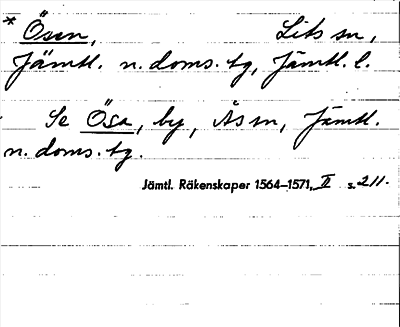 * Ösen, Lits sn,
Jämtl. n. doms. tg, Jämtl. l.
Se Ösa, by, Ås sn, Jämtl.
n. doms. tg.
Jämtl. Räkenskaper 1564–1571, II s. 211.